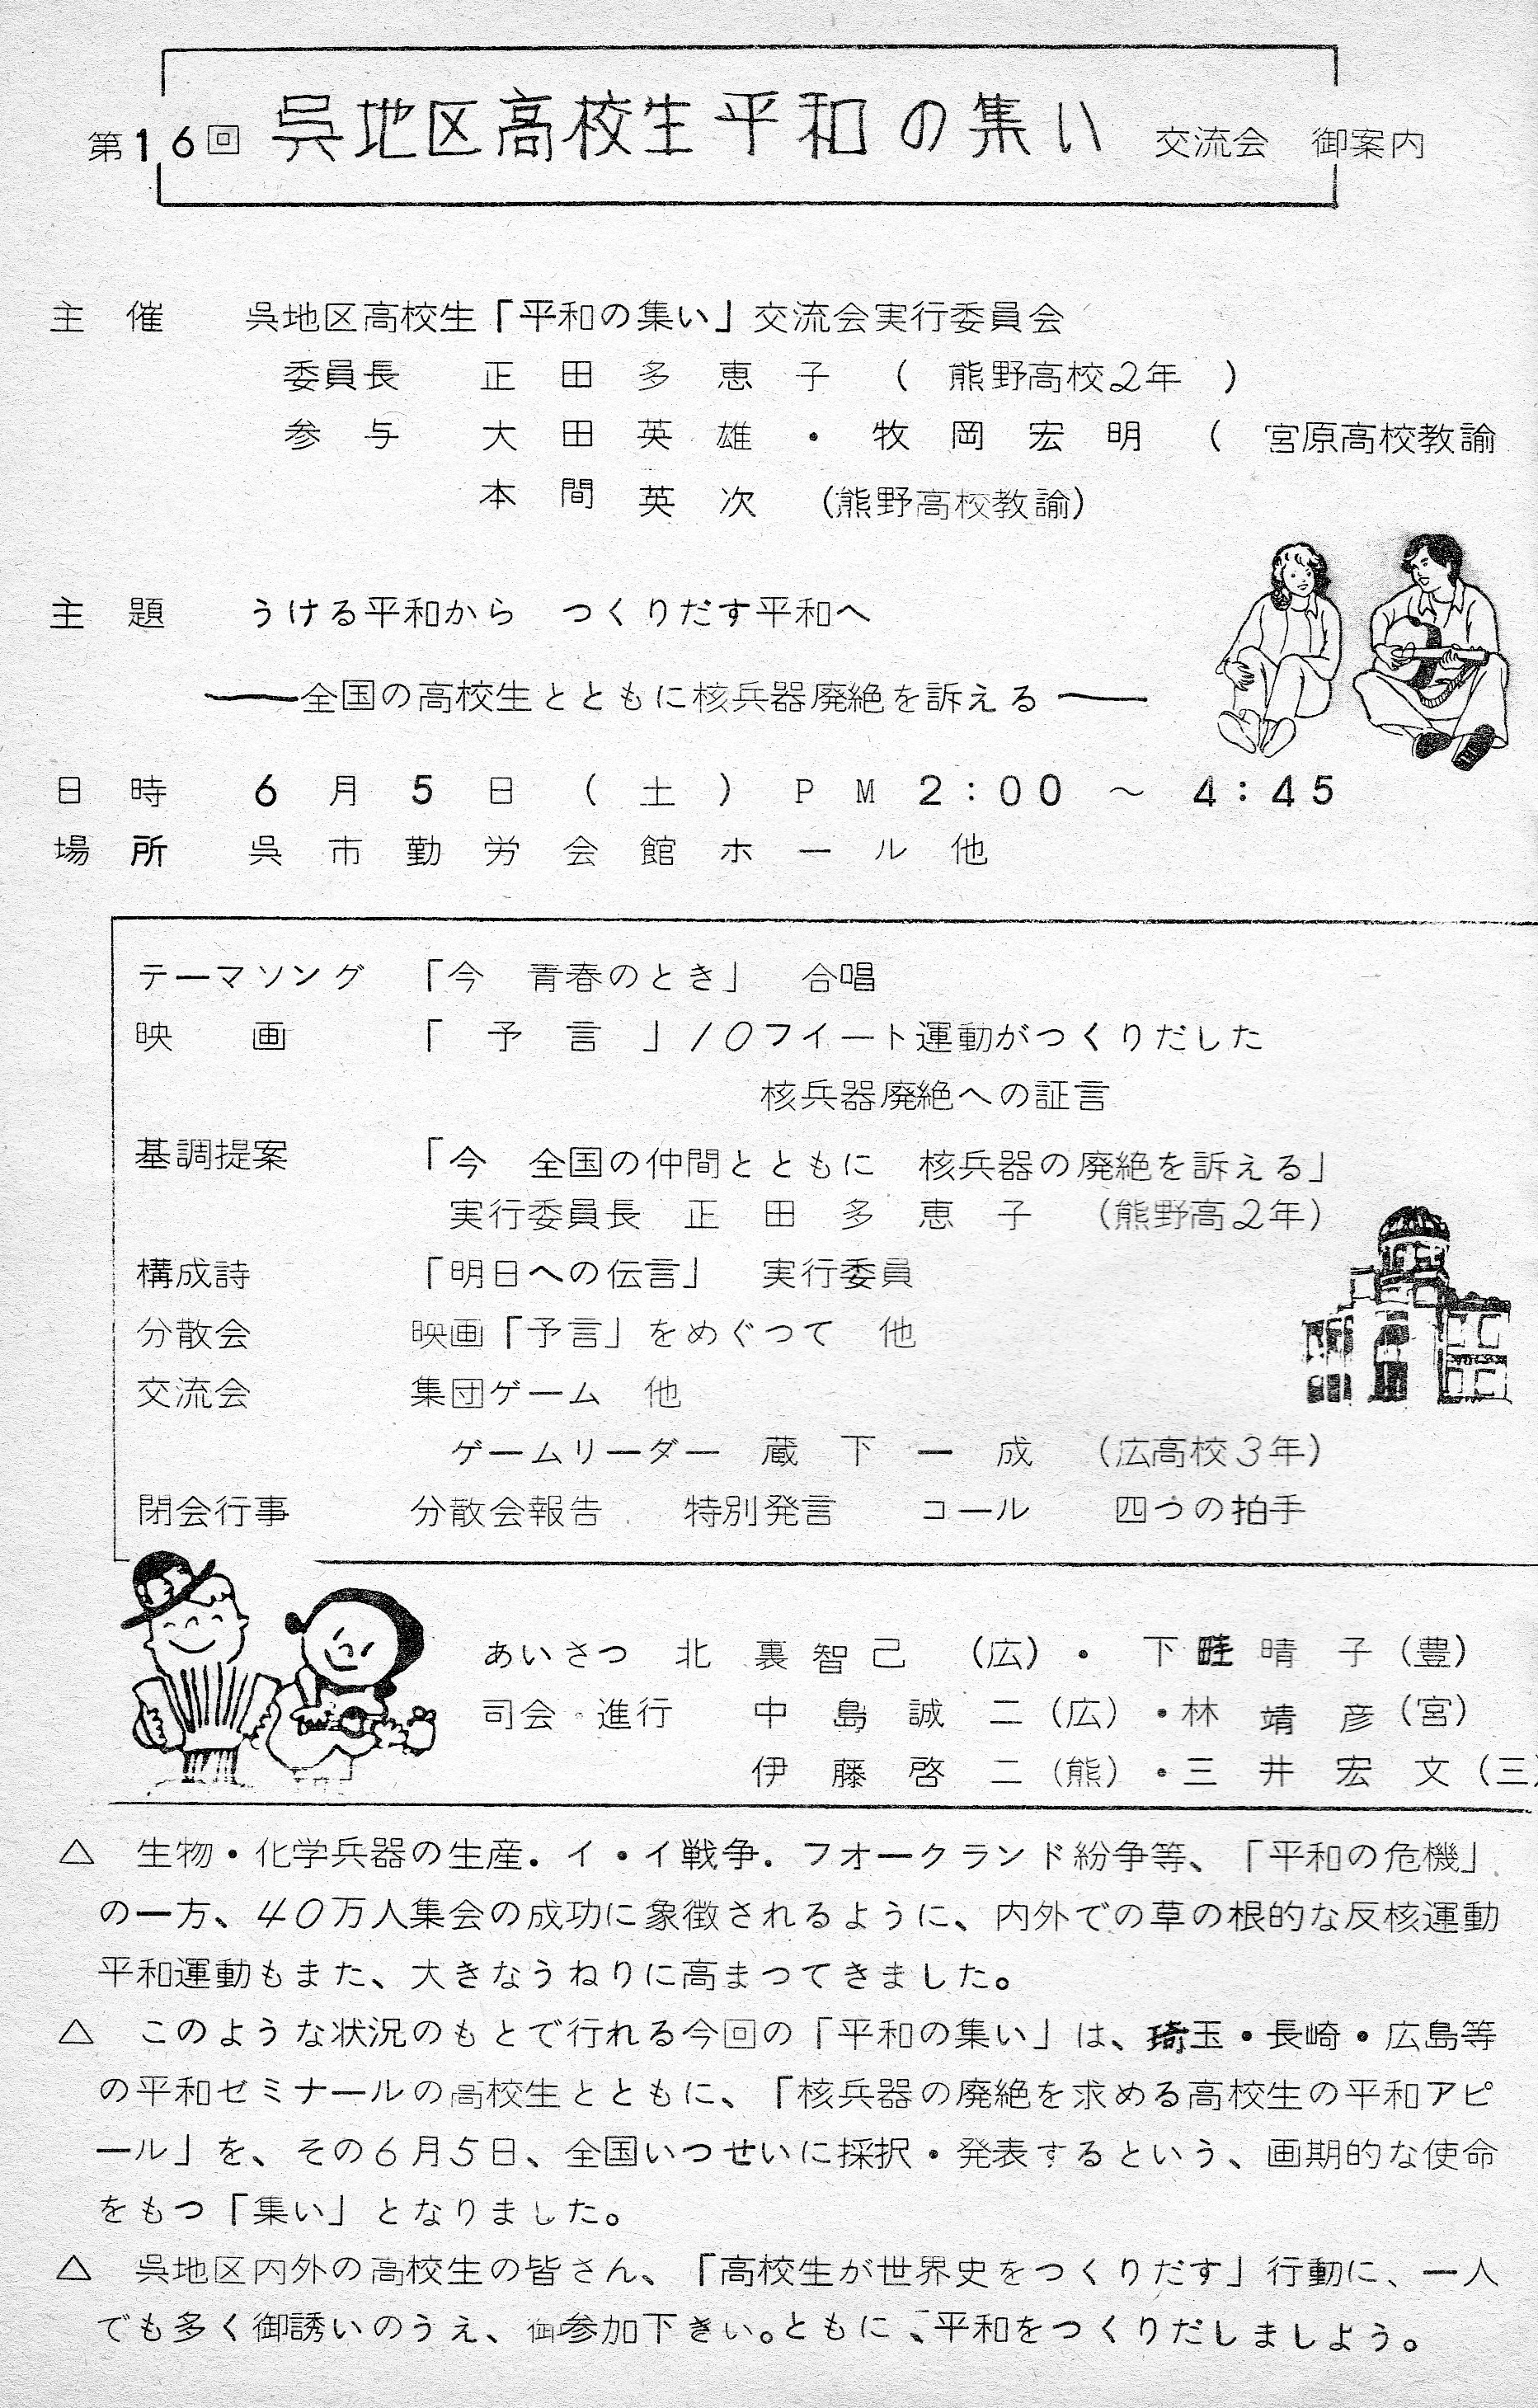 第16回 呉地区高校生平和の集い 交流会 御案内
主 催 呉地区高校生「平和の集い」交流会実行委員会
委員長 正 田 多 恵 子 ( 熊野高校2年 )
参 与 大 田 英 雄 ・ 牧 岡 宏 明 ( 宮原高校教諭
本 間 英 次 (熊野高校教諭)
主 題 うける平和から つくりだす平和へ
──全国の高校生とともに核兵器廃絶を訴える──
日 時 6 月 5 日 ( 土 ) PM 2:00 〜 4:45
場 所 呉 市 勤 労 会 館 ホ ー ル 他
テーマソング 「今 青春のとき」 合唱
映 画 「 予 言 」10フイート運動がつくりだした
核兵器廃絶への証言
基調提案 「今 全国の仲間とともに 核兵器の廃絶を訴える」
実行委員長 正 田 多 恵 子 (熊野高2年)
構成詩 「明日への伝言」 実行委員
分散会 映画「予言」をめぐつて 他
交流会 集団ゲーム 他
ゲームリーダー 蔵 下 一 成 (広高校3年)
閉会行事 分散会報告 特別発言 コール 四つの拍手
あいさつ 北 裏 智 己 (広)・ 下 畦 晴 子(豊)
司会・進行 中 島 誠 二(広)・林 靖 彦(宮)
伊 藤 啓 二(熊)・三 井 宏 文(三)
△ 生物・化学兵器の生産.イ・イ戦争.フオークランド紛争等、「平和の危機」
の一方、40万人集会の成功に象徴されるように、内外での草の根的な反核運動
平和運動もまた、大きなうねりに高まつてきました。
△ このような状況のもとで行れる今回の「平和の集い」は、埼玉・長崎・広島等
の平和ゼミナールの高校生とともに、「核兵器の廃絶を求める高校生の平和アピ
ール」を、その6月5日、全国いつせいに採択・発表するという、画期的な使命
をもつ「集い」となりました。
△ 呉地区内外の高校生の皆さん、「高校生が世界史をつくりだす」行動に、一人
でも多く御誘いのうえ、御参加下きい。ともに、平和をつくりだしましよう。